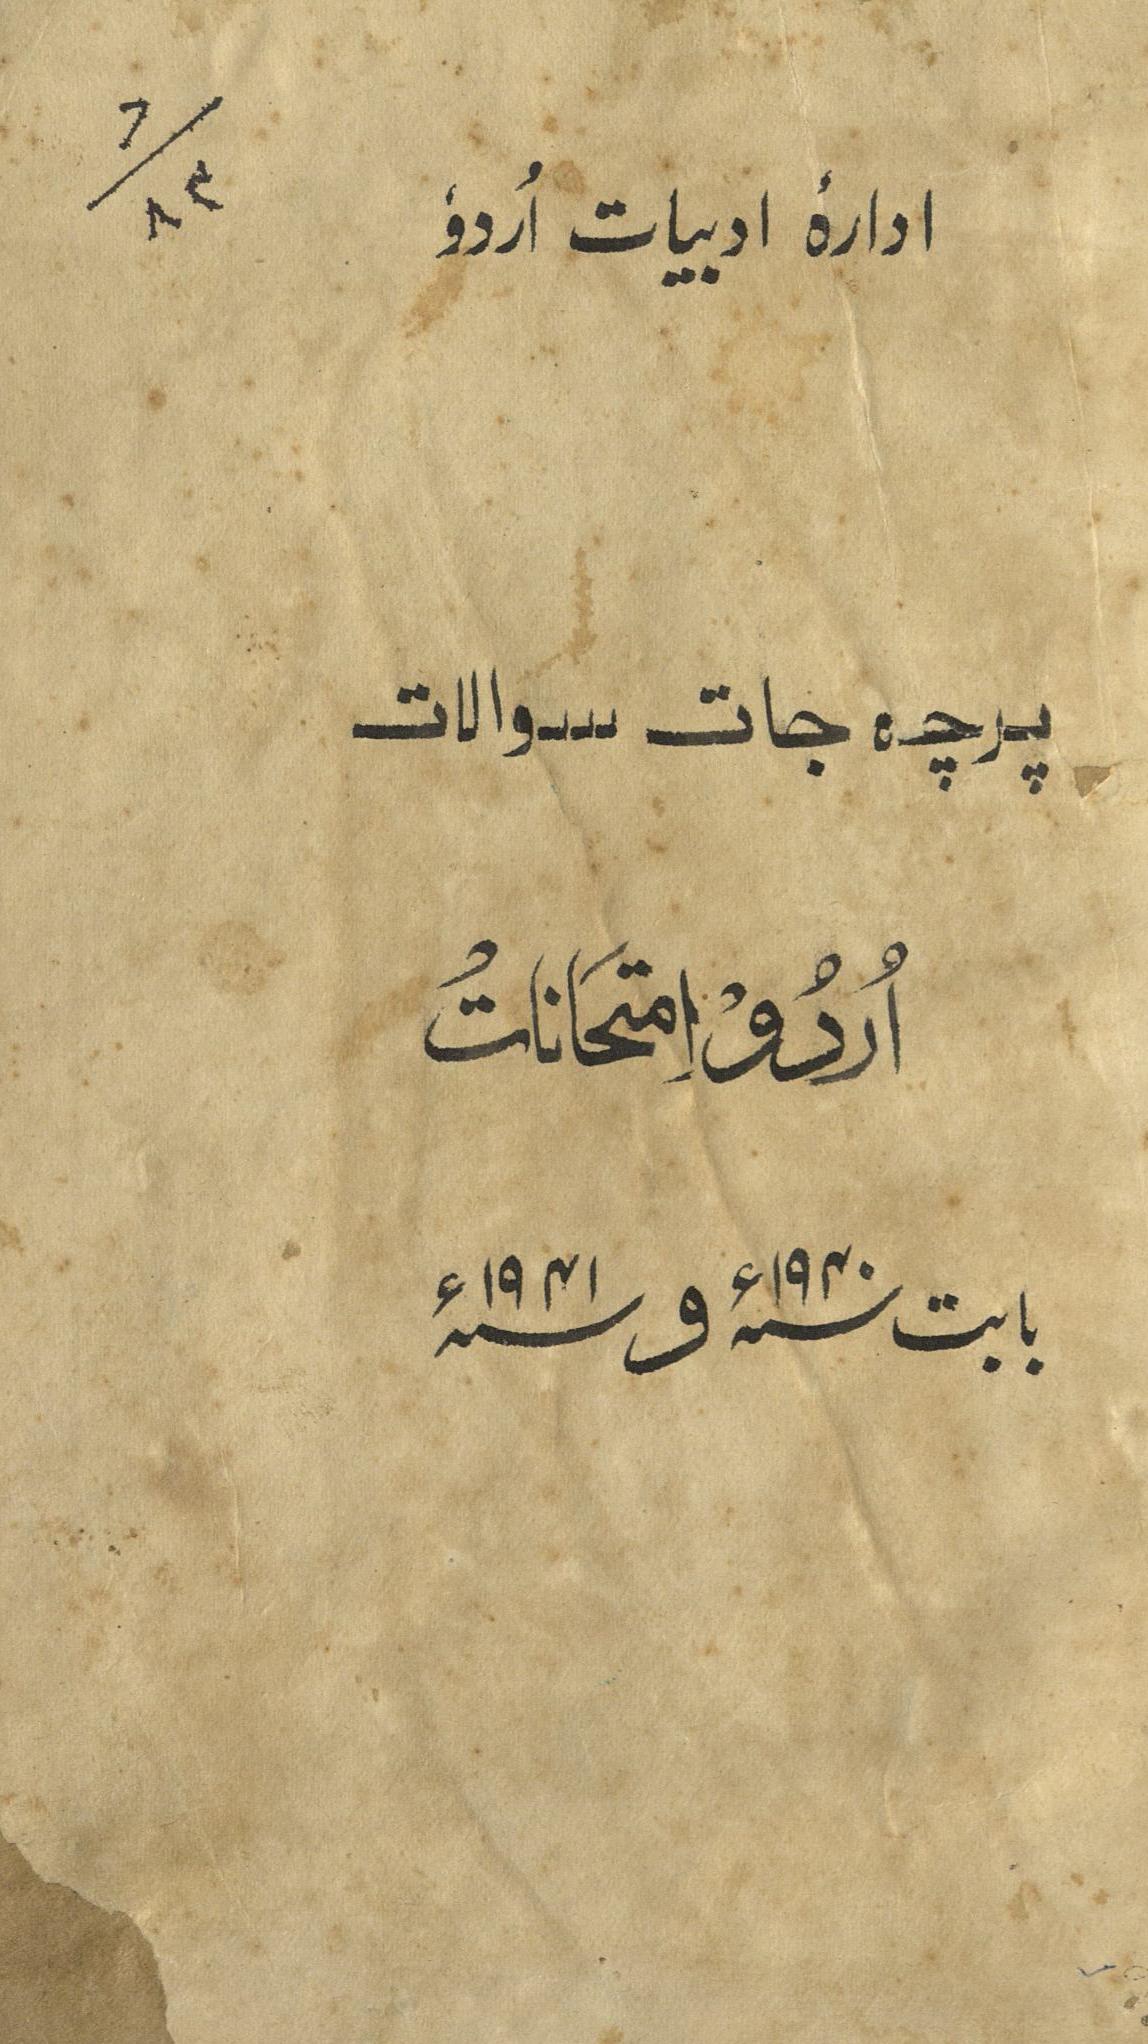 ادارۂ ادبیات اُردو
پرچہ جات سوالات
اُردُوْ اِمتحَانَاتُ
بابت سنہ ۱۹۴۰ء و سنہ ۱۹۴۱ء